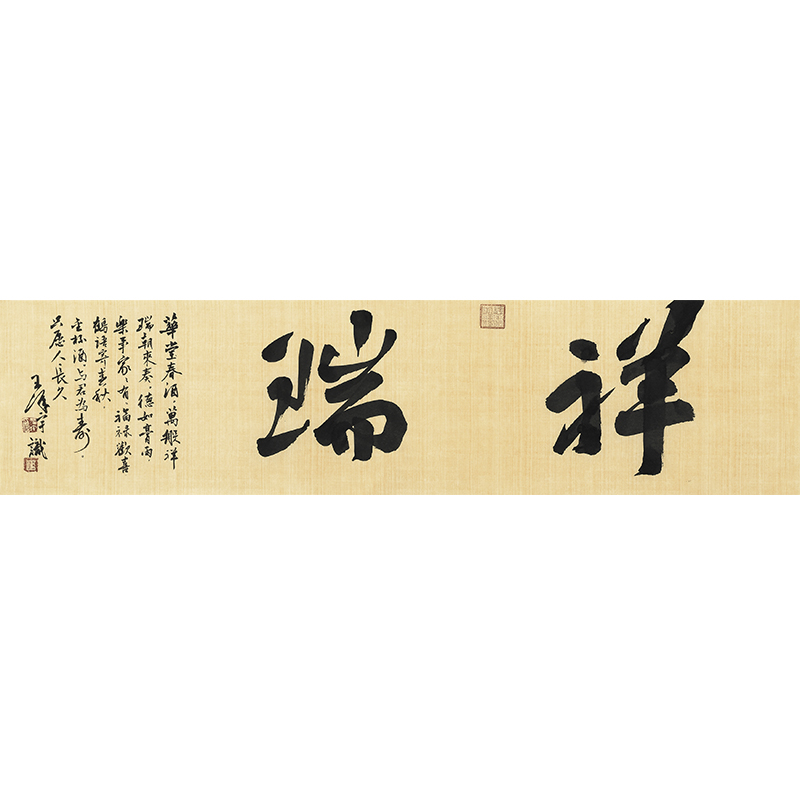 祥瑞
華堂春酒,萬般祥
瑞朝來奏,德如膏雨,
樂平家、有、福禄歡喜
鶴語寄春秋,
金杯酒,与君為壽,
只愿人長久
王 識